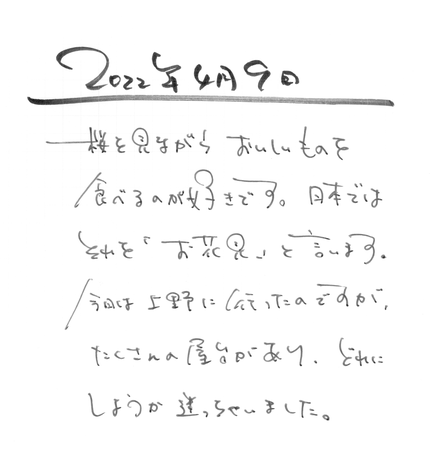 2022年4月9日
桜を見ながら おいしいものを
食べるのが好きです。日本では
それを「お花見」と言います。
今回は上野に行ったのですが、
たくさんの屋台があり、どれに
しようか迷っちゃいました。